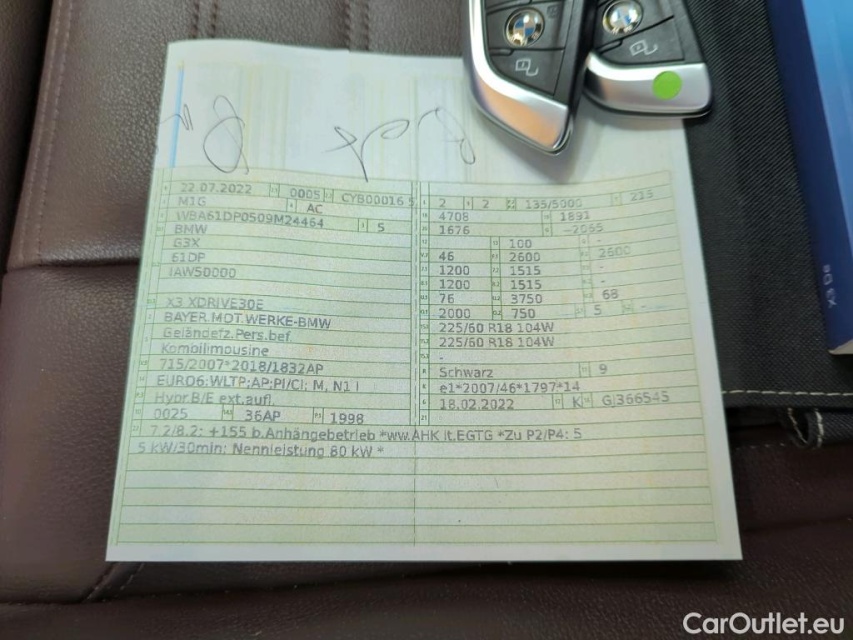 22.07.2022 0005 CYB00016 5
M1G AC
WBA61DP0509M24464 5
BMW
G3X
61DP
IAW50000
X3 XDRIVE30E
BAYER.MOT.WERKE-BMW
Geländefz.Pers.bef.
Kombilimousine
715/2007*2018/1832AP
EURO6;WLTP;AP;PI/CI; M, N1 I
Hybr.B/E ext.aufl.
0025 36AP 1998
2 2 135/5000 215
4708 1891
1676 -2065
- 100 -
46 2600 2600
1200 1515 -
1200 1515 -
76 3750 68
2000 750 5 -
225/60 R18 104W
225/60 R18 104W
-
Schwarz 9
e1*2007/46*1797*14
18.02.2022 K GJ366545
7.2/8.2: +155 b.Anhängebetrieb *ww.AHK lt.EGTG *Zu P2/P4: 5
5 kW/30min: Nennleistung 80 kW *
CarOutlet.eu